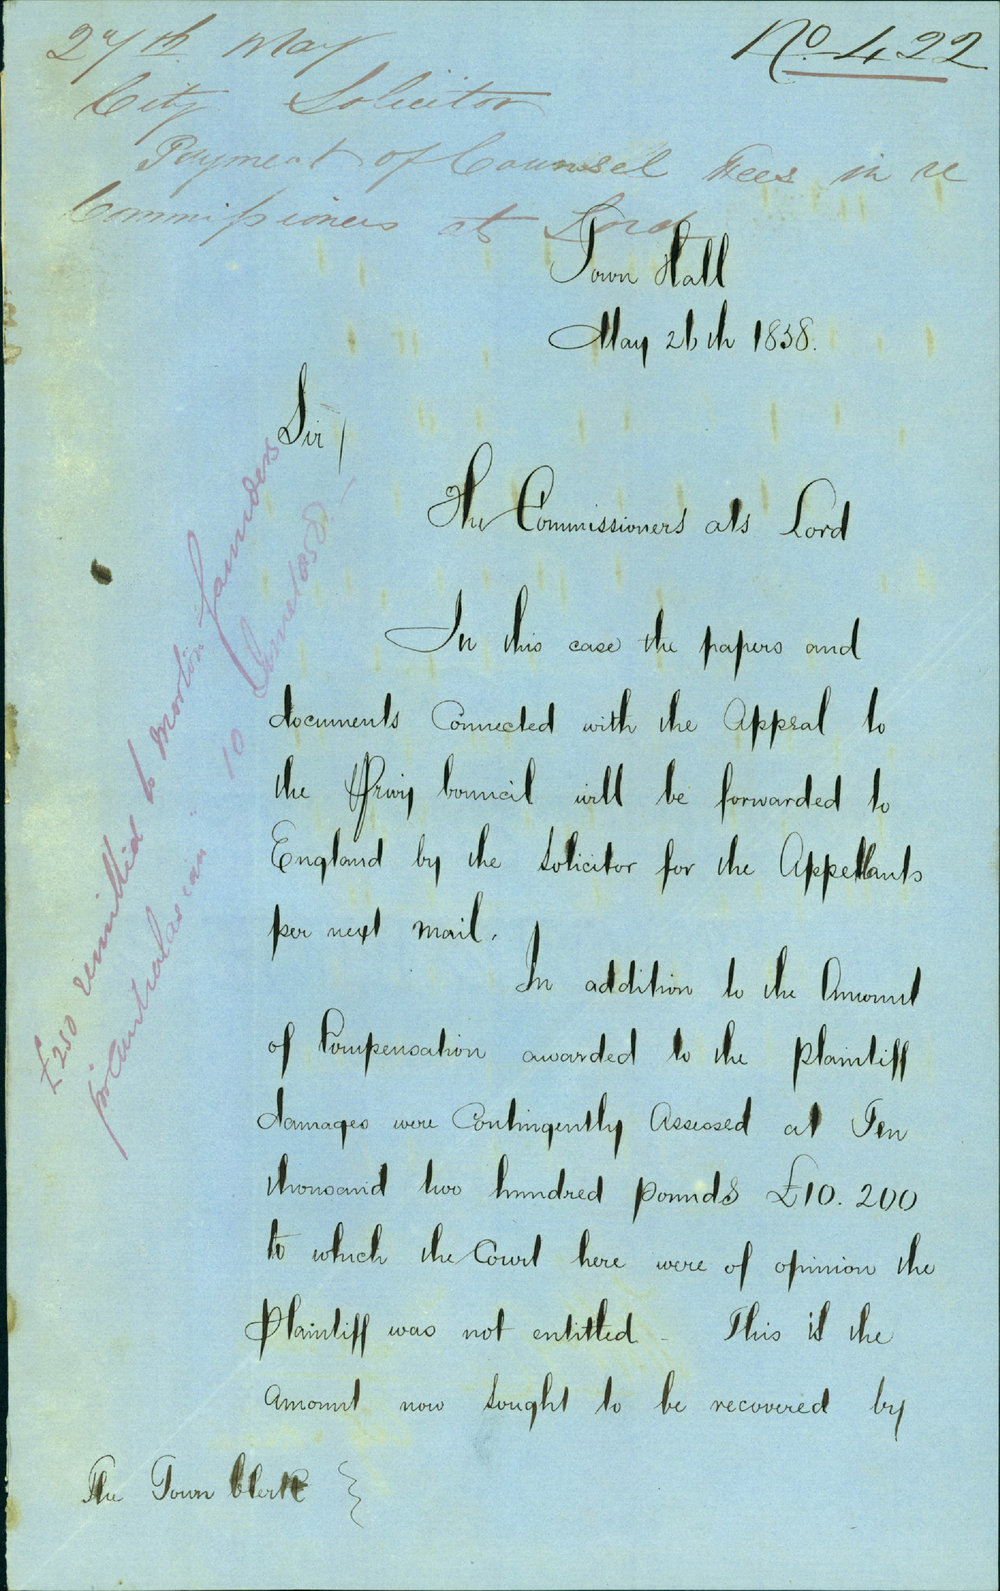 27th May
No. 422
City Solicitor
Payment of Counsel Fees in re
Commissioners ats Lord
Town Hall
May 26th 1858.
Sir/
The Commissioners ats Lord
In this case the papers and
documents Connected with the Appeal to
the Privy Council will be forwarded to
England by the Solicitor for the Appellants
per next mail.
In addition to the Amount
of Compensation awarded to the plaintiff
damages were Contingently Assessed at Ten
thousand two hundred pounds £10.200
to which the Court here were of opinion the
Plaintiff was not entitled - This is the
Amount now sought to be recovered by
The Town Clerk
£250 remitted to Morton Saunders
pr Australasian 10 June 1858